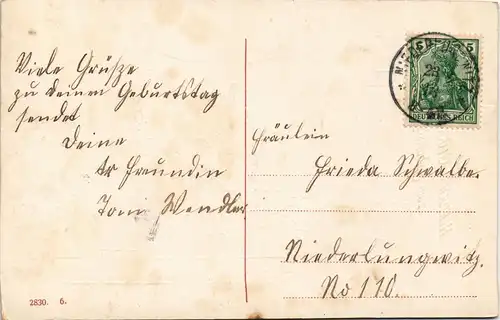 Viele Grüsze
zu deinem Geburtstag
sendet
Deine
Freundin
Toni Wendler
Fräulein
Frieda Schwalbe.
Niederlungwitz.
No 110.
5
DEUTSCHES REICH
2830. 6.